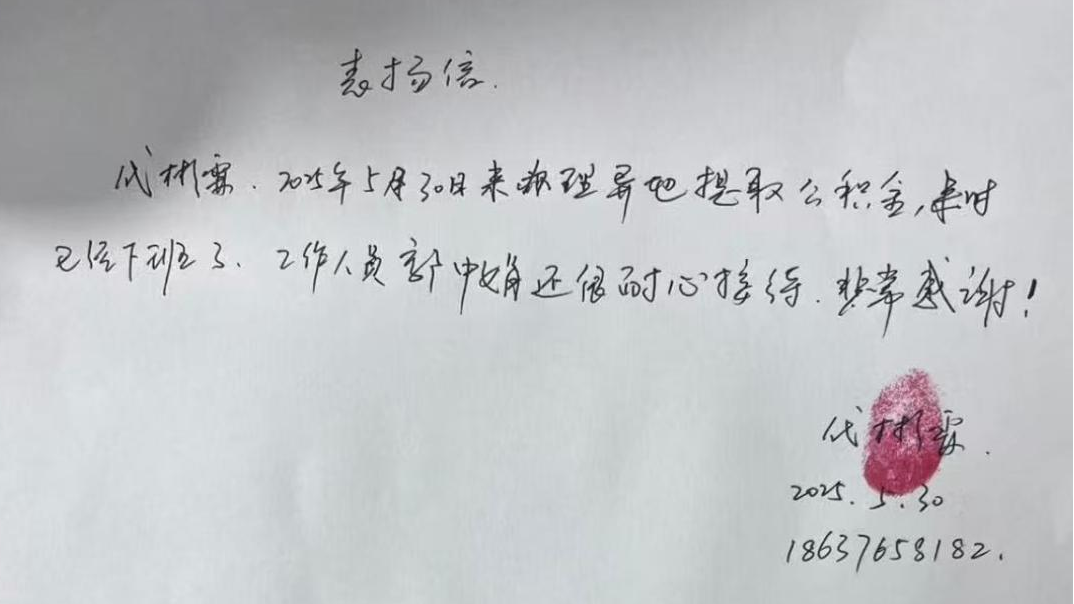 表扬信.
代彬霖.2025年5月30日来办理异地提取公积金,来时
已经下班了.工作人员 中 还很耐心接待.非常感谢!
代彬霖.
2025.5.30
18637658182.